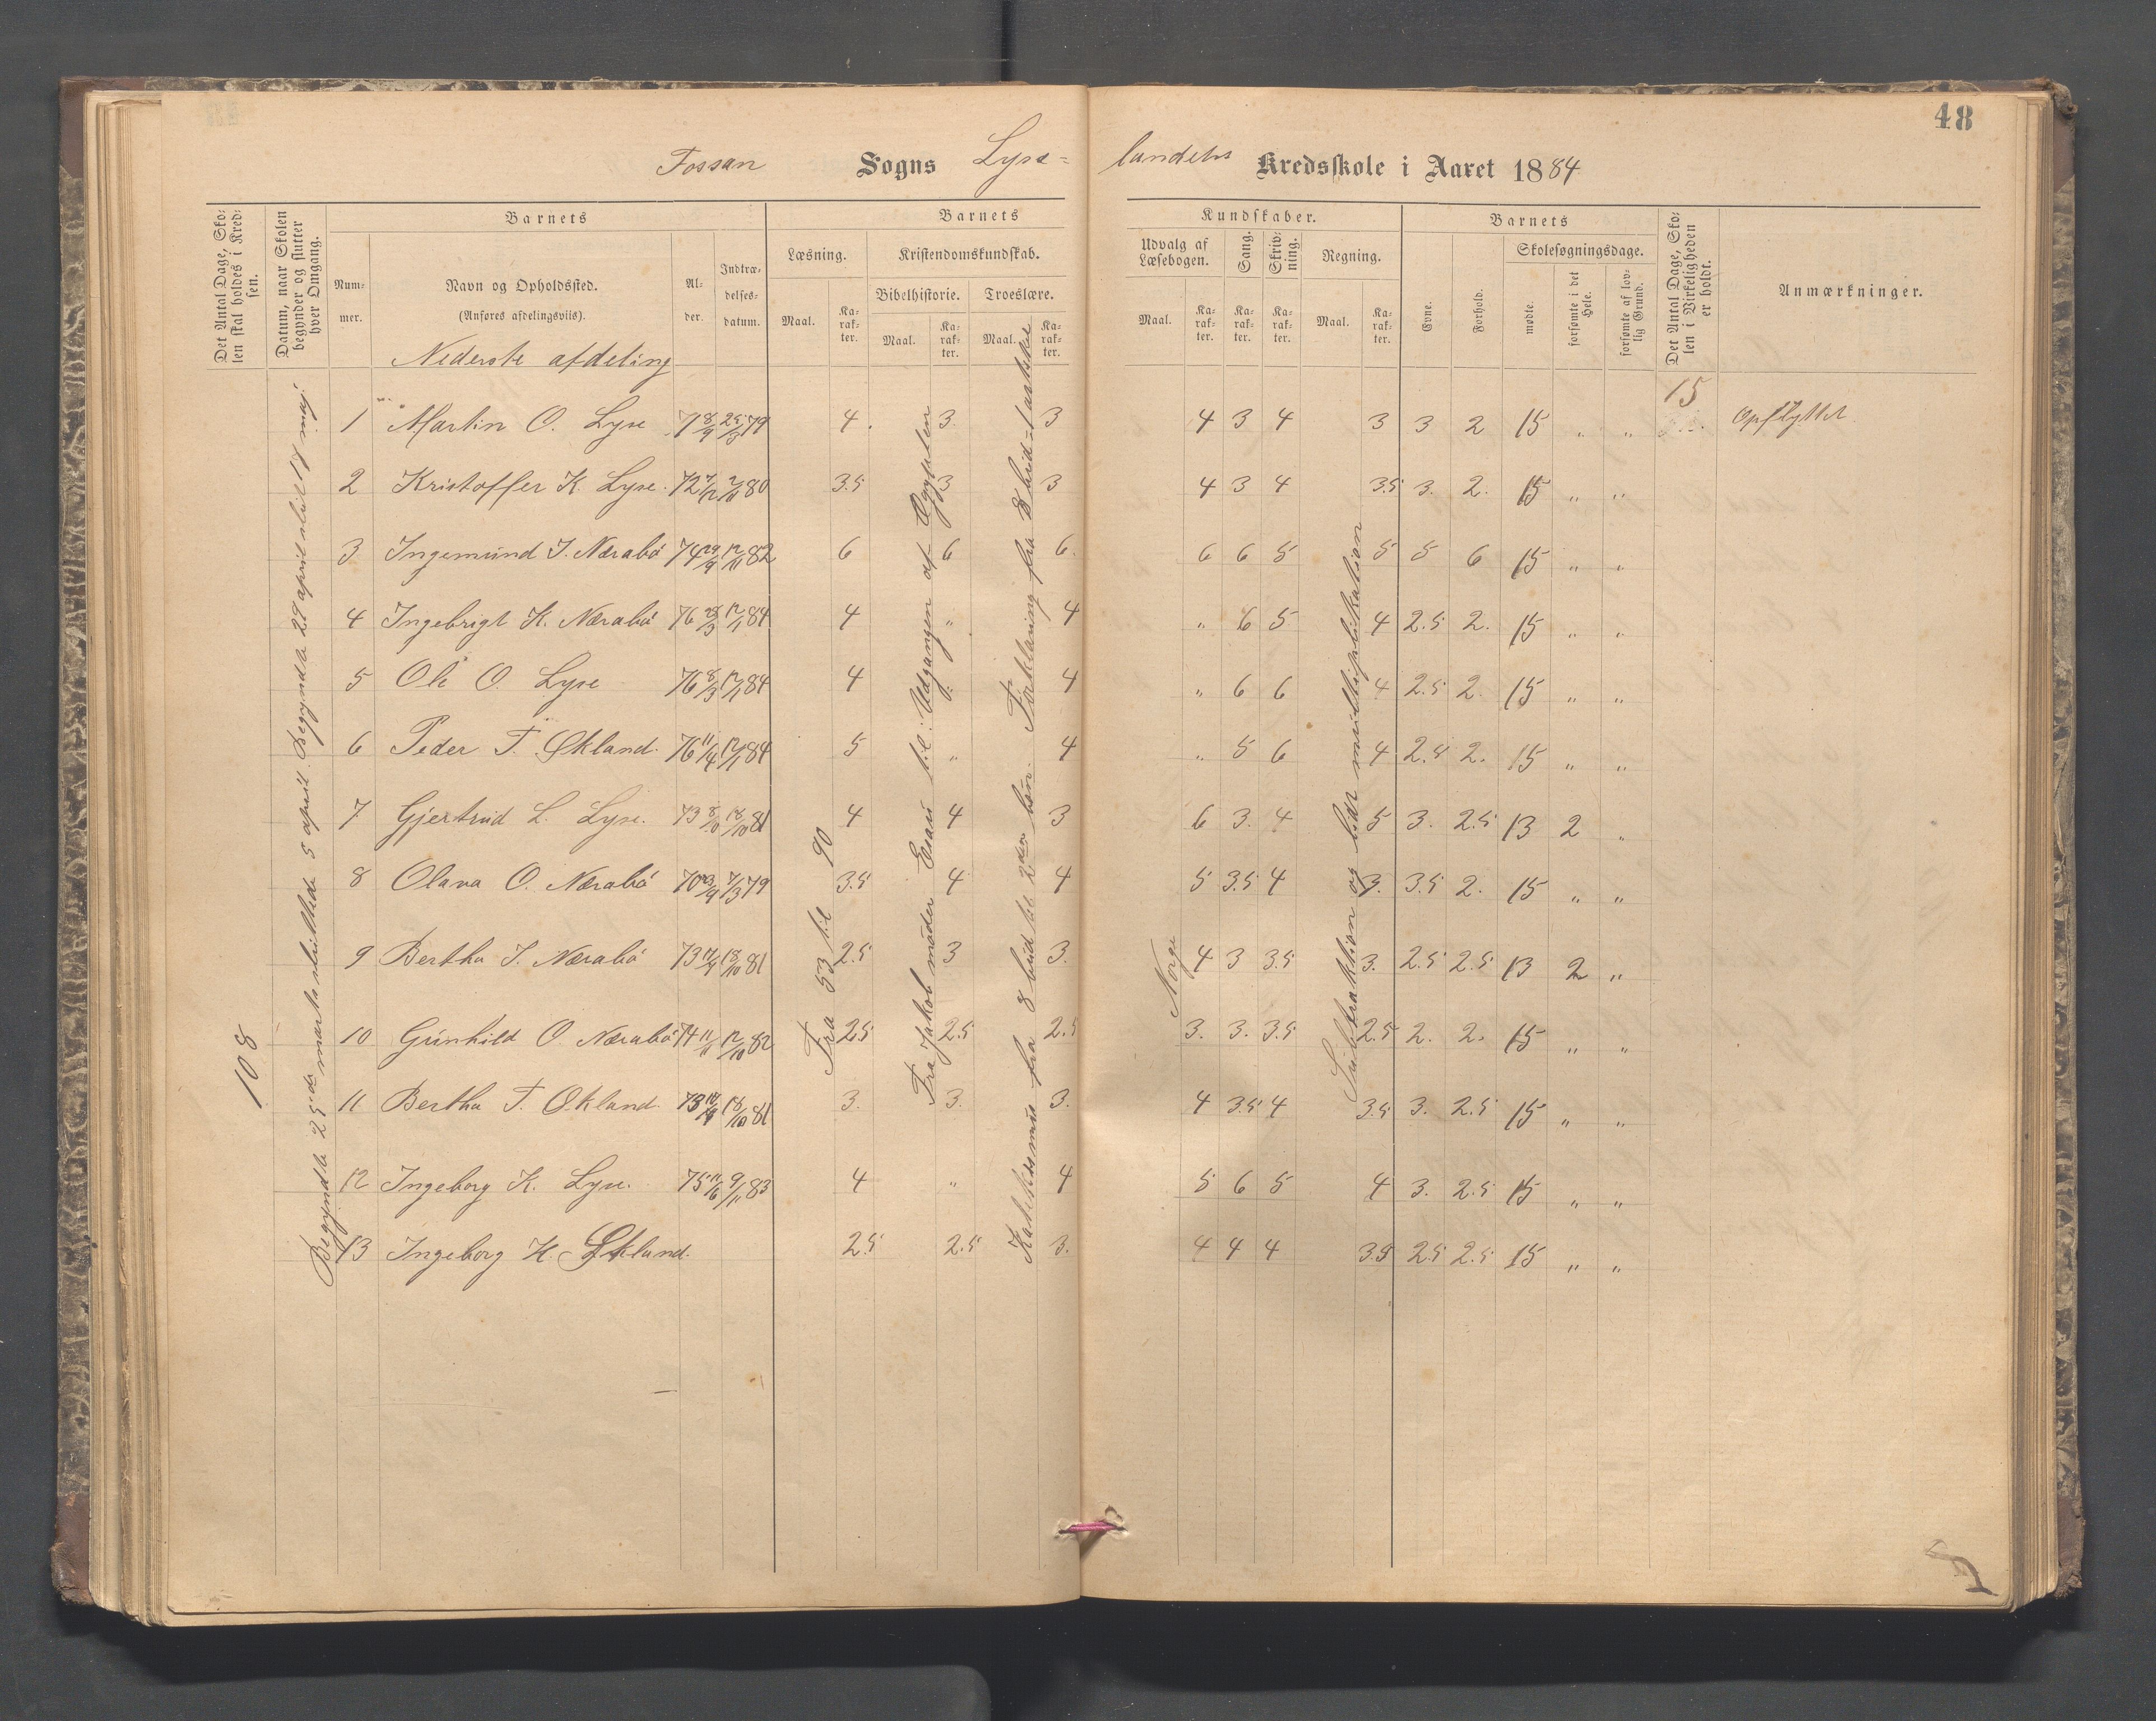 48
Fossan Sogns Lyse=landets Kredsskole i Aaret 1884
Det Antal Dage, Skolen skal holdes i Kredsen.
Datum, naar Skolen begynder og slutter hver Omgang.
Barnets
Nummer.
Navn og Opholdssted.
(Anføres afdelingsviis).
Alder.
Indtrædelsesdatum.
Barnets Kundskaber.
Læsning.
Maal. Karakter.
Kristendomskundskab.
Bibelhistorie. Troeslære.
Maal. Karakter. Maal. Karakter.
Udvalg af Læsebogen.
Maal. Karakter.
Sang. Karakter.
Skrivning. Karakter.
Regning.
Maal. Karakter.
Barnets
Evne. Forhold.
Skolesøgningsdage.
mødte. forsømte i det Hele. forsømte af lovlig Grund.
Det Antal Dage, Skolen i Virkeligheden er holdt.
Anmærkninger.
Nederste afdeling
108
Begyndte 25de marts sluttede 5 april. Begyndte 29 april slut 17 maj.
Fra 53 til 90
Fra Jakob møder Esau til: Udgangen af Egypten
Katekismus fra 8 bud til 2den bøn. Forklaring fra 8 bud =
Norge
Subtraktion og lidt multiplikation
1 Martin O. Lyse 71 8/9 25/3 79 4. 3. 3 4 3 4 3 3 2 15 " " 15 Opflyttet
2 Kristoffer K. Lyse. 72 80 3.5 3 3 4 3 4 3.5 3. 2. 15 " "
3 Ingemund J. Nærabø 74 29/9 17/11 82 6 6 6. 6 6 5 5 5 6 15 " "
4 Ingebrigt K. Nærabø 76 17/1 84 4 " 4 " 6 5 4 2.5 2. 15 " "
5 Ole O. Lyse 76 8/3 17/1 84 4 " 4 " 6 6 4 2.5 2. 15 " "
6 Peder T. Økland. 76 11/4 17/1 84 5 " 4 " 5 6 4 2.5 2. 15 " "
7 Gjertrud L. Lyse. 73 8/10 18/10 81 4 4 3 6 3. 4 5 3. 2.5 13 2 "
8 Olava O. Nærabø 70 23/9 7/3 79 3.5 4 4 5 3.5 4 3. 3.5 2. 15 " "
9 Bertha J. Nærabø 73 18/10 81 2.5 3 3. 4 3 3.5 3. 2.5 2.5 13 2 "
10 Gunhild O. Nærabø 74 11/11 17/10 82 2.5 2.5 2.5 3. 3. 3.5 2.5 2. 2. 15 " "
11 Bertha T. Økland. 73 18/10 81 3. 3. 3. 4 3.5 4 3.5 3. 2.5 15 " "
12 Ingeborg K. Lyse. 75 11/6 9/11 83 4 " 4 5 6 5 4 3. 2.5 15 " "
13 Ingeborg H. Økland. 2.5 2.5 3. 4 4 4 3.5 2.5 2.5 15 " "